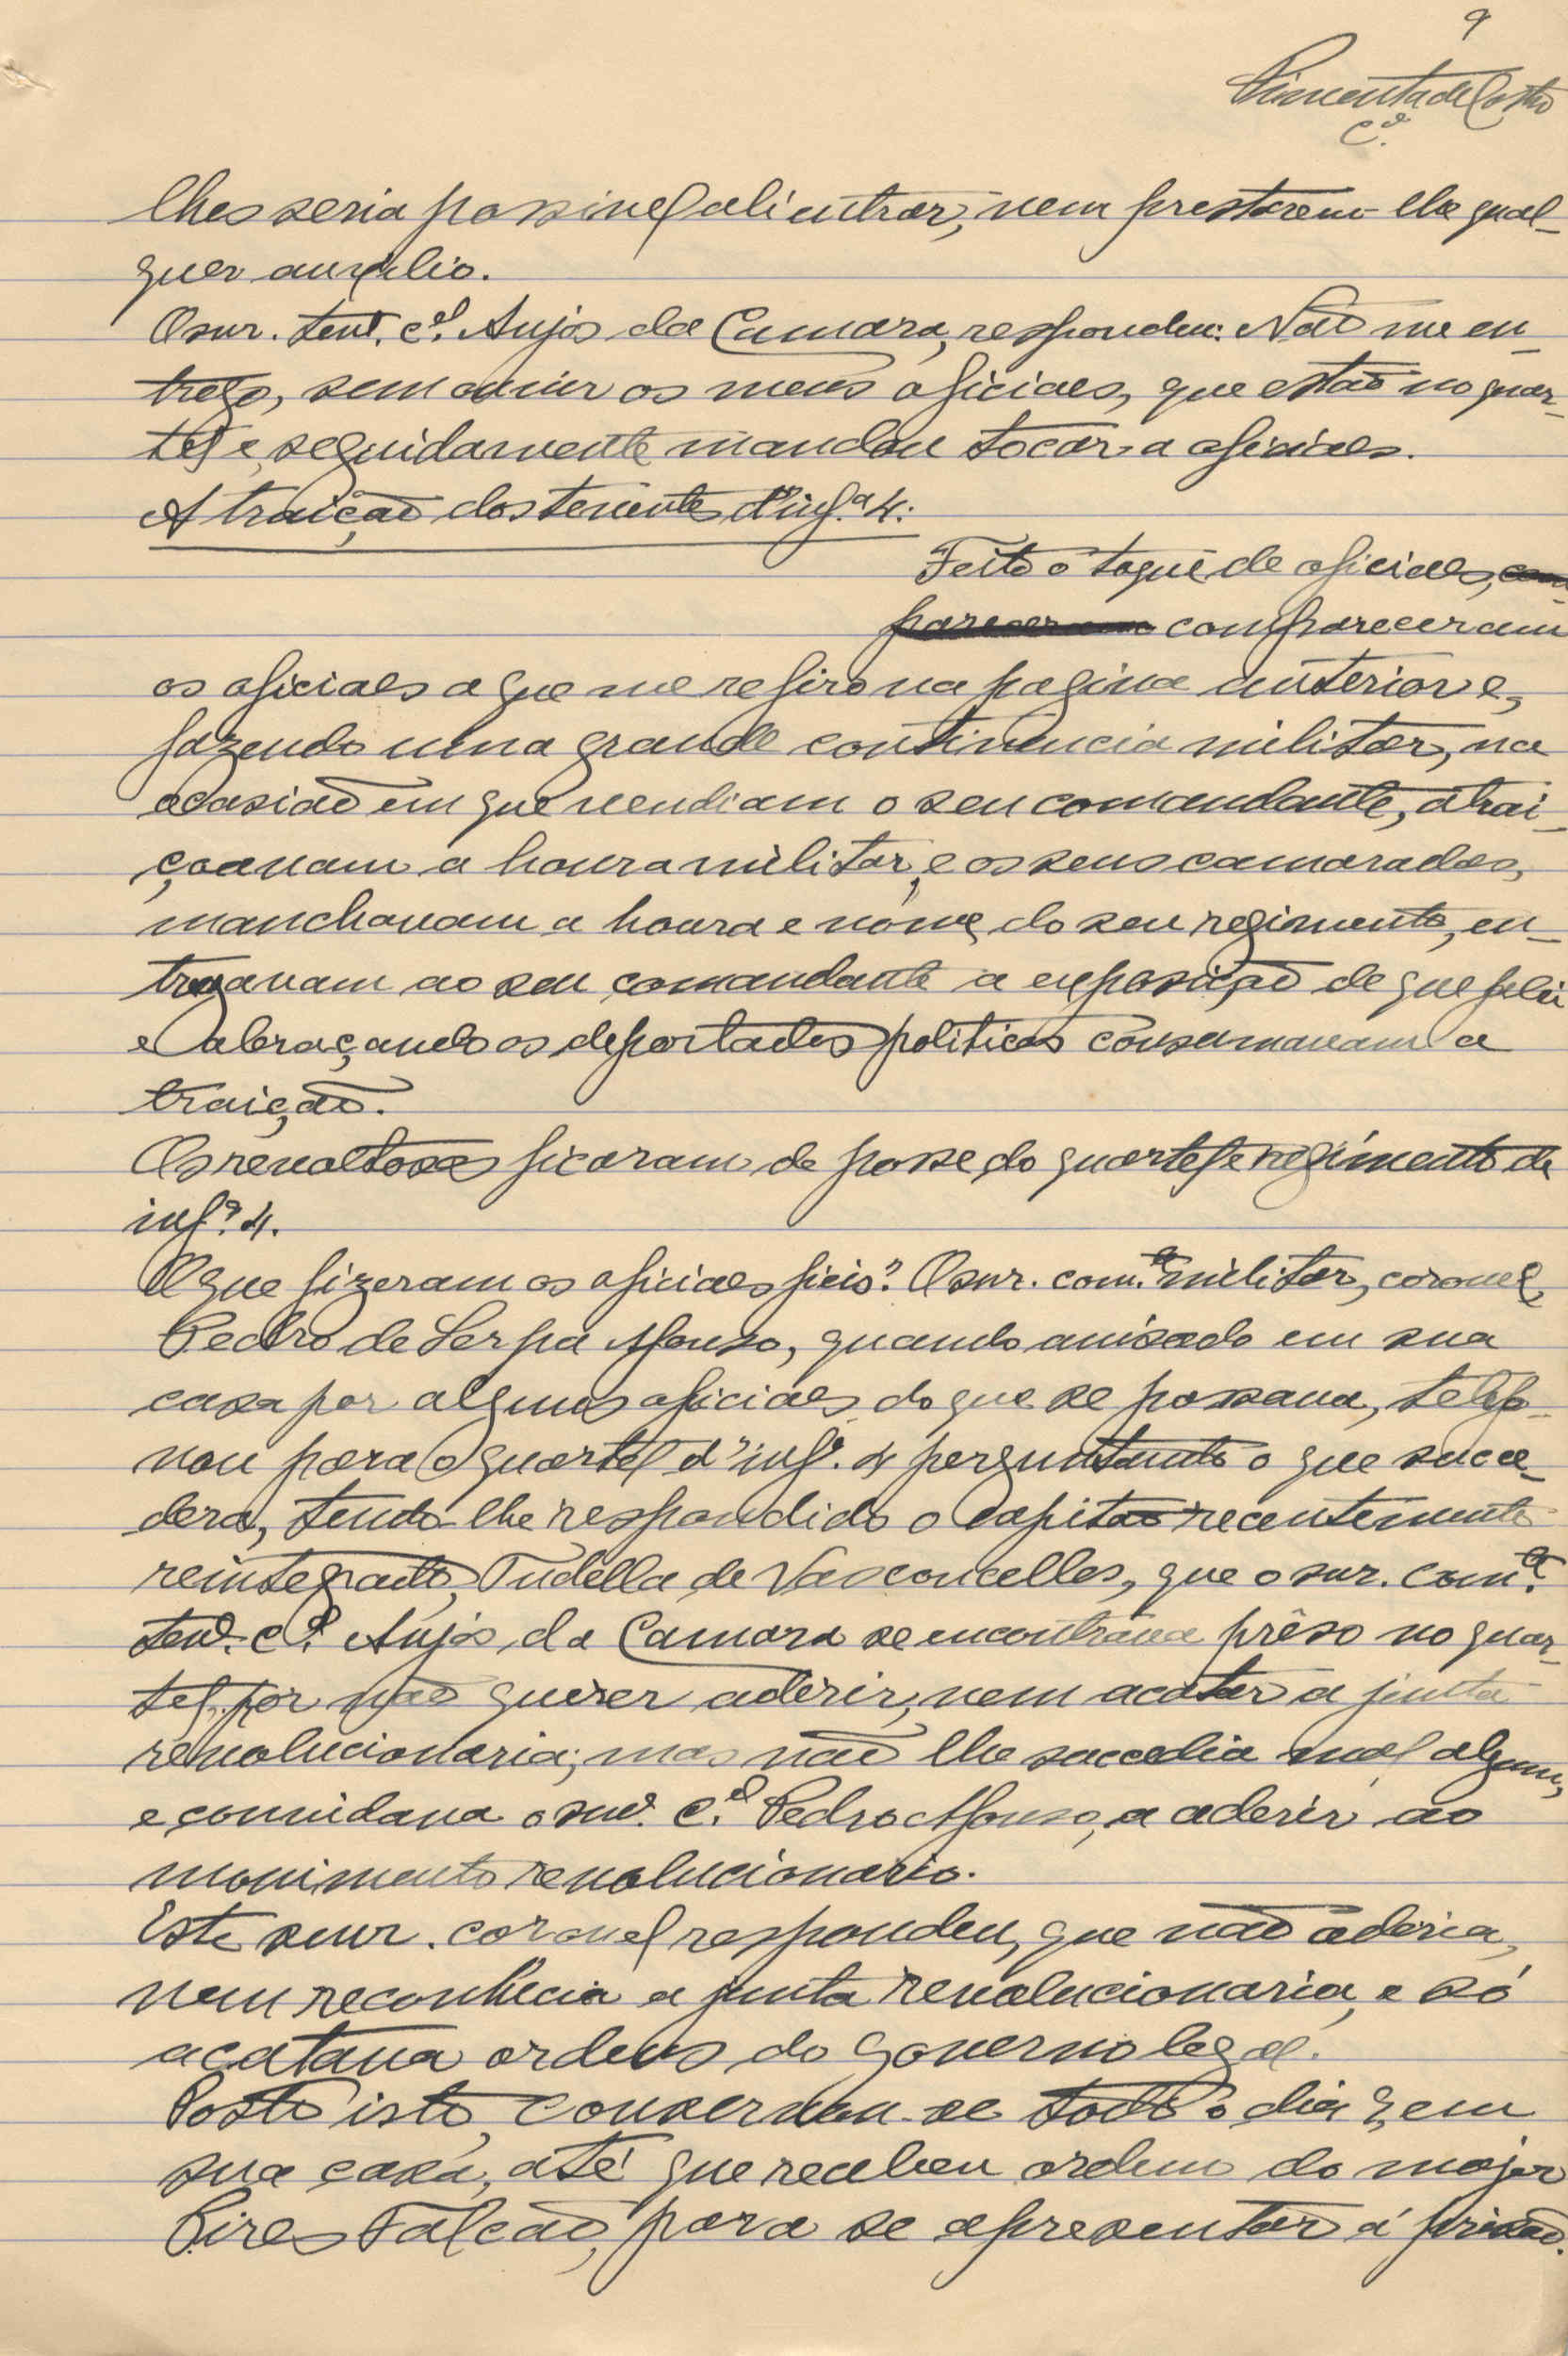 9
Pimenta de Castro
C.el
lhes seria possivel ali entrar, nem prestarem-lhe qual-
quer auxilio.
O snr. tent. c.el Anjos da Camara, respondeu: Não me en-
trego, sem ouvir os meus oficiaes, que estão no quar-
tel e, seguidamente mandou tocar a oficiaes.
A traição dos tenentes d'inf.a 4:
Feito o toque de oficiaes, com-
pareceram compareceram
os oficiaes a que me refiro na pagina anterior e,
fazendo uma grande continencia militar, na
ocasião em que vendiam o seu comandante, atrai-
çoavam a honra militar, e os seus camaradas,
manchavam a honra e nome do seu regimento, en-
tregavam ao seu comandante a exposição de que falei
e abraçando os deportados politicos consumavam a
traição.
Os revoltosos ficaram de posse do quartel e regimento de
inf.a 4.
O que fizeram os oficiaes fieis? O snr. com.te militar, coronel,
Pedro de Serpa Afonso, quando avisado em sua
casa por alguns oficiaes do que se passava, telefo-
nou para o quartel d'inf.a 4 perguntando o que succe-
dera, tendo-lhe respondido o capitão recentemente
reintegrado, Tudella de Vasconcellos, que o snr. com.te
tent. c.el Anjos da Camara se encontrava prêso no quar-
tel, por não querer aderir, nem acatar a junta
revolucionaria; mas não lhe sucedia mal algum,
e convidava o snr. c.el Pedro Afonso, a aderir ao
movimento revolucionario.
Este snr. coronel respondeu, que não aderia,
nem reconhecia a junta revolucionaria, e só
acatava ordens do governo legal.
Posto isto, conservou-se todo o dia 7, em
sua casa, até que recebeu ordem do major
Pires Falcão, para se apresentar á prisão.